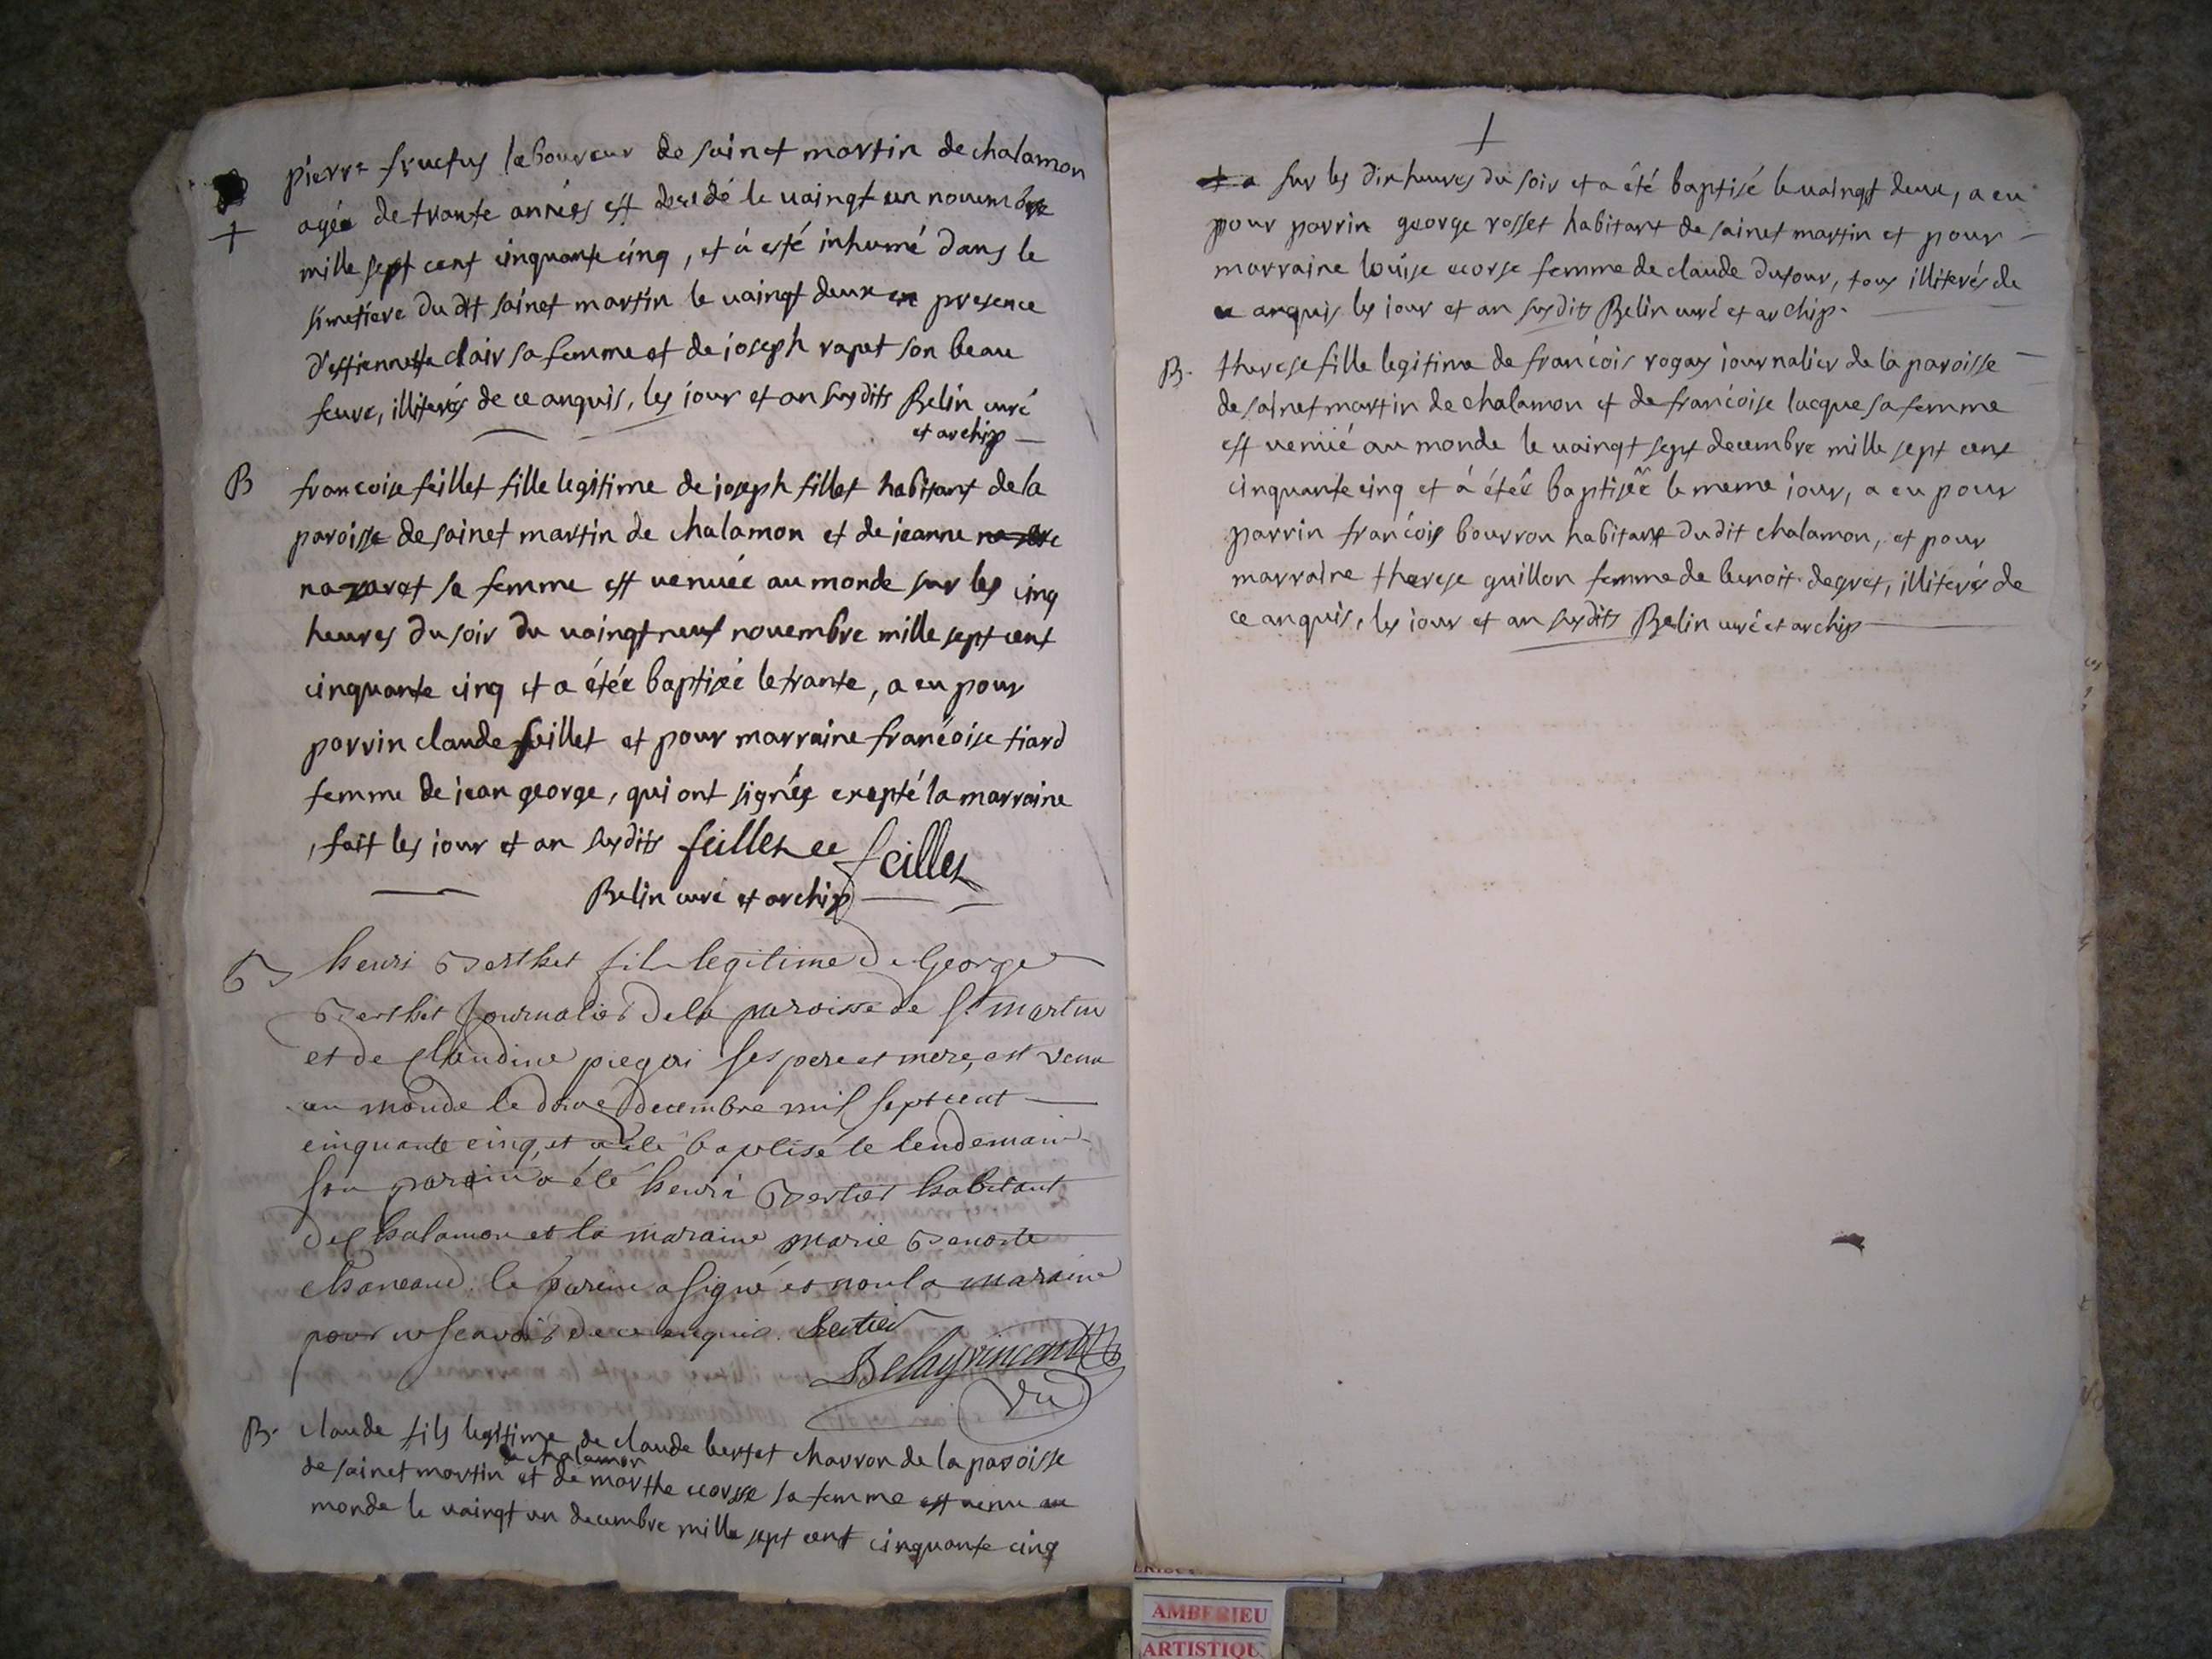 +
pierre fructus laboureur de sainct martin de chalamon
agée de trante années est decedé le vaingt un novembre
mille sept cent cinquante cinq, et à esté inhumé dans le
simetiere du dt sainct martin le vaingt deux en presence
d'estiennette clair sa femme et de joseph rapet son beau
feure, illiterés de ce anquis, les jour et an susdits Belin curé
et archip
B
francoise feillet fille legitime de joseph fillet habitant de la
paroisse de sainct martin de chalamon et de jeanne
nazaret sa femme est venuée au monde sur les cinq
heures du soir du vaingt neuf novembre mille sept cent
cinquante cinq et a étée baptisée le trante, a eu pour
parrin claude feillet et pour marraine francoise tiard
femme de jean george, qui ont signés exepté la marraine
, fait les jour et an susdits feillet et feillet
Belin curé et archip
B
henri Berthet fils legitime de George
Berthet Journalier de la paroisse de St martin
et de Claudine piegai ses pere et mere, est venu
au monde le douze decembre mil sept cent
cinquante cinq, et a été baptisé le lendemain
son parain a été henri Bertier habitant
de Chalamon et la maraine marie Benoite
chaneaud. le parain a signé et non la maraine
pour ne scavoir de ce enquis. Bertier
Delayvincent
vic
B. claude fils legitime de claude bertet charron de la paroisse
de chalamon
de sainct martin et de marthe ecorsse sa femme est venu au
monde le vaingt un decembre mille sept cent cinquante cinq
+
sur les dix heures du soir et a été baptisé le vaingt deux, a eu
pour parrin george rosset habitant de sainct martin et pour
marraine louise ecorse femme de claude dufour, tous illiterés de
ce anquis les jour et an susdits Belin curé et archip.
B. therese fille legitime de francois rogay journalier de la paroisse
de sainct martin de chalamon et de francoise lacque sa femme
est venué au monde le vaingt sept decembre mille sept cent
cinquante cinq et à étée baptisée le meme jour, a eu pour
parrin francois bourron habitant du dit chalamon, et pour
marraine therese guillon femme de benoit degret, illiterés de
ce anquis, les jour et an susdits Belin curé et archip
AMBERIEU
ARTISTIQU